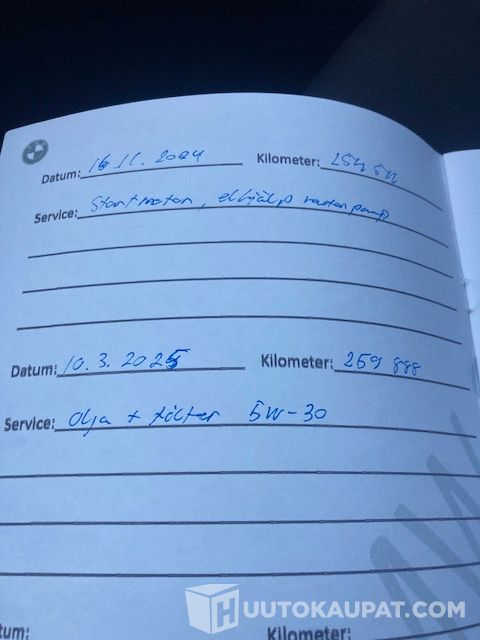 Datum: 16.11.2024 Kilometer:
Service: Startmotor, elhjälp vattenpump
Datum: 10.3.2025 Kilometer: 259 888
Service: Olja + filter 5W-30
tum: Kilometer:
HUUTOKAUPAT.COM